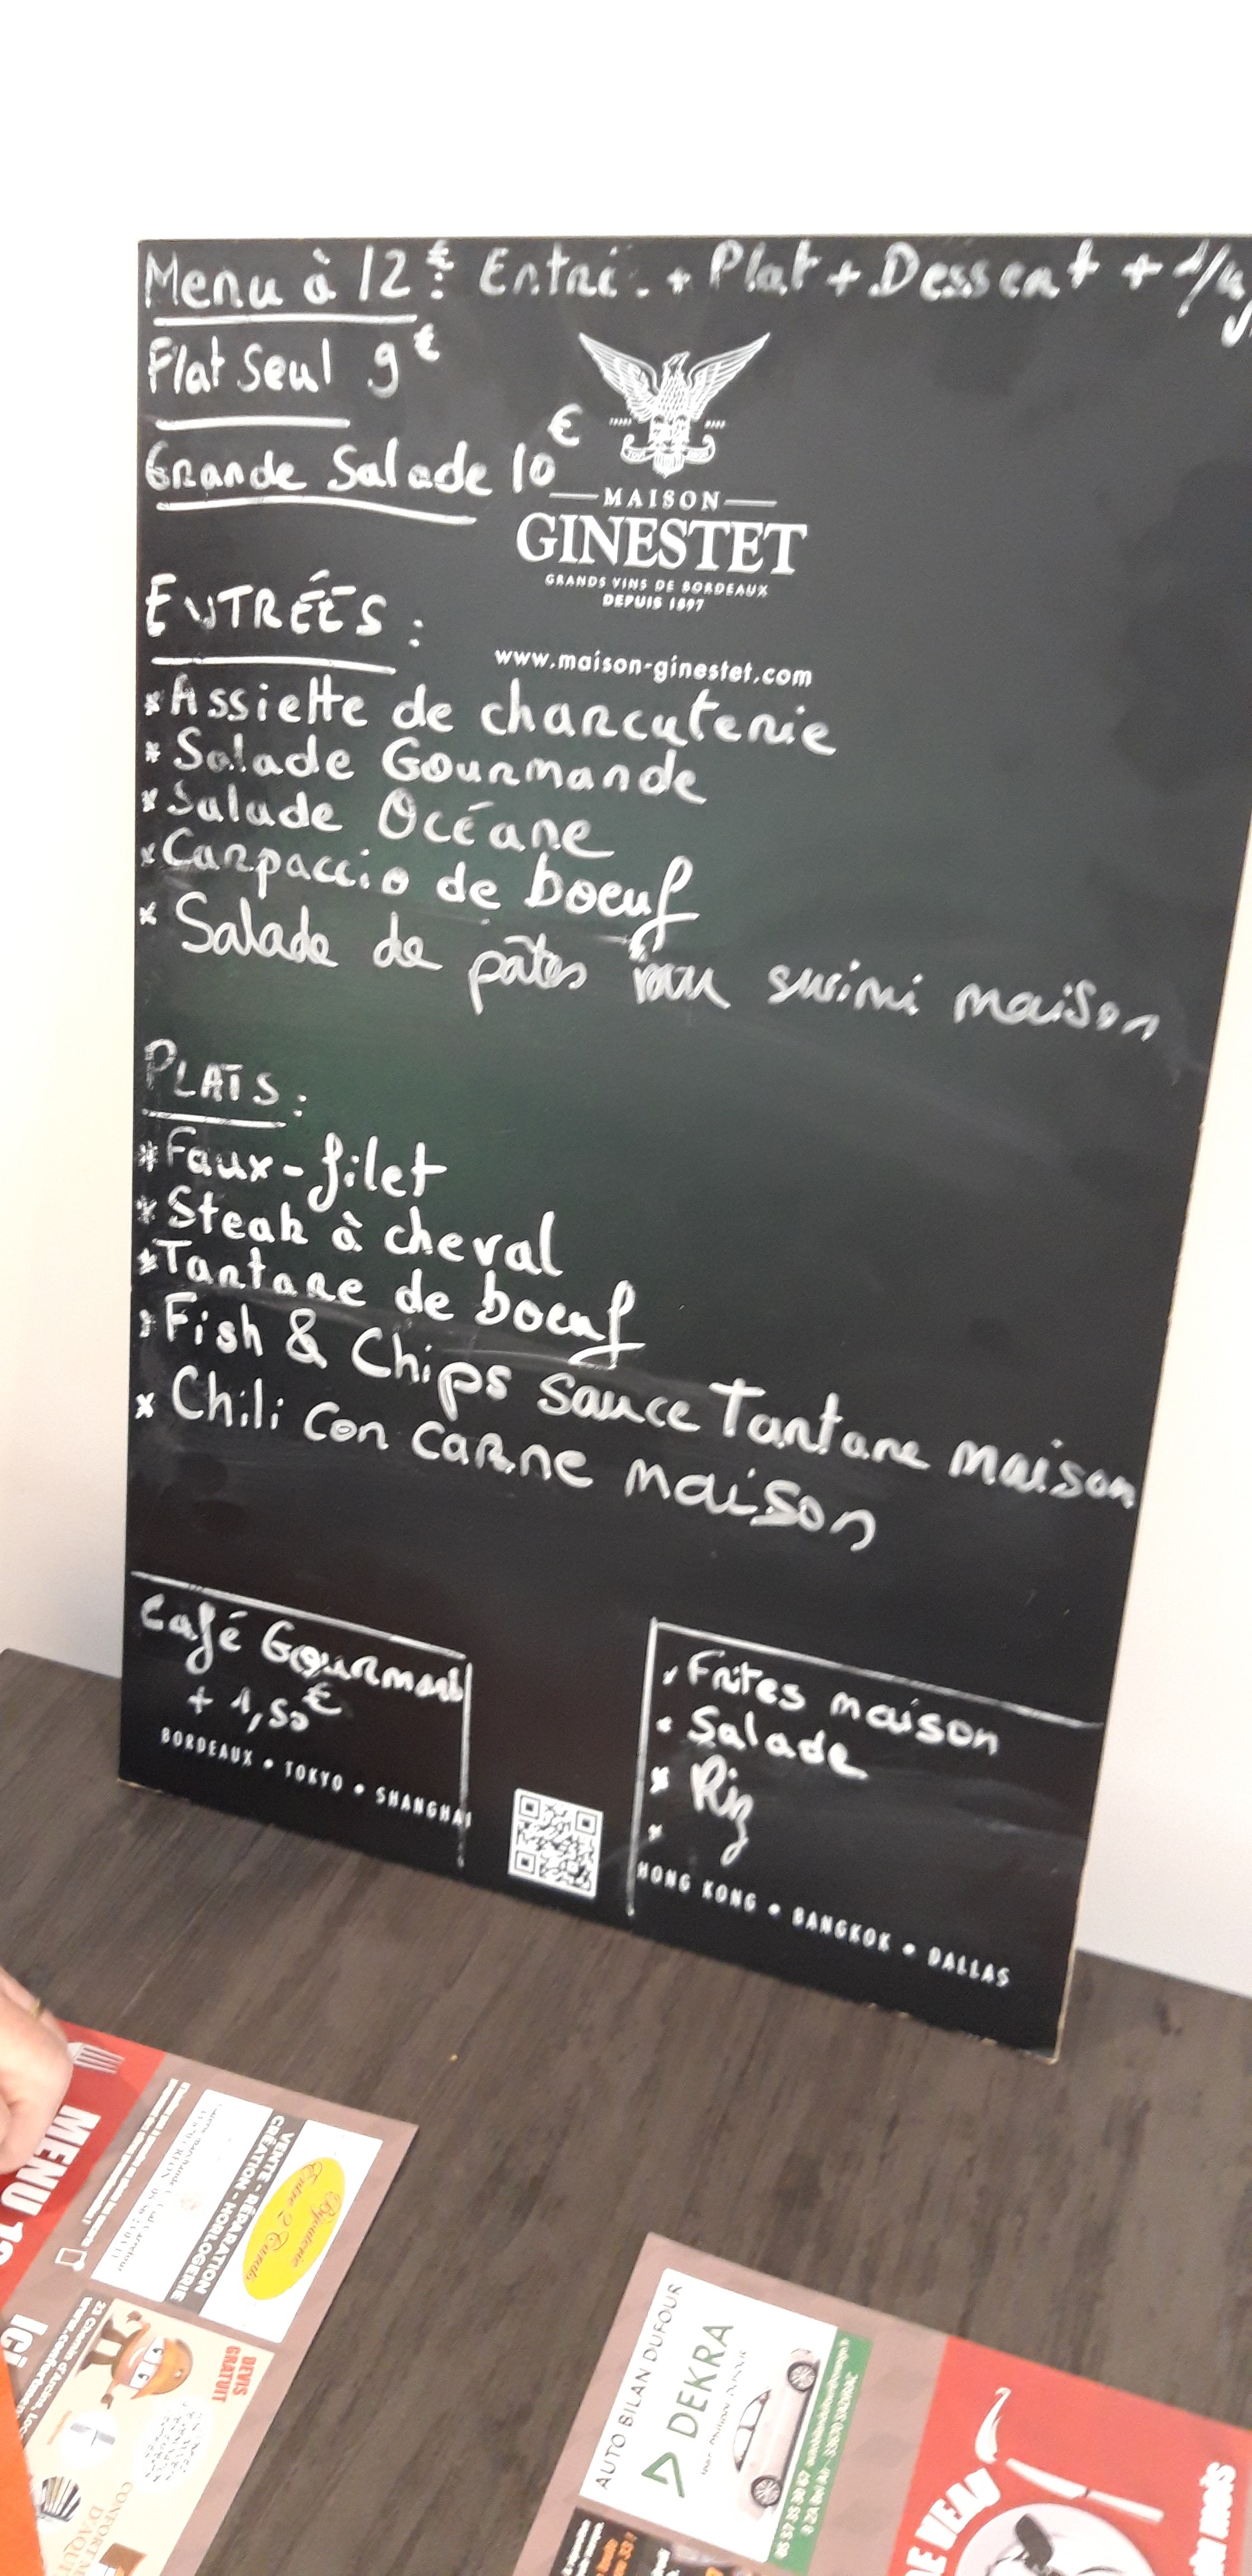 Menu à 12€: Entrée + Plat + Dessert + 1/4
Plat seul 9€
Grande Salade 10€
MAISON
GINESTET
GRANDS VINS DE BORDEAUX
DEPUIS 1897
www.maison-ginestet.com
ENTRÉES:
* Assiette de charcuterie
* Salade Gourmande
* Salade Océane
* Carpaccio de boeuf
* Salade de pâtes surimi maison
PLATS:
* Faux-filet
* Steak à cheval
* Tartare de boeuf
* Fish & Chips sauce Tartare maison
* Chili con carne maison
Café Gourmand
+ 1,50€
* Frites maison
* Salade
* Riz
*
BORDEAUX • TOKYO • SHANGHAI
HONG KONG • BANGKOK • DALLAS
MENU
VENTE - RÉPARATION
CRÉATION - HORLOGERIE
Bijouterie
Entre 2 Carats
DEVIS
GRATUIT
Ici
AUTO BILAN DUFOUR
DEKRA
DE VEAU